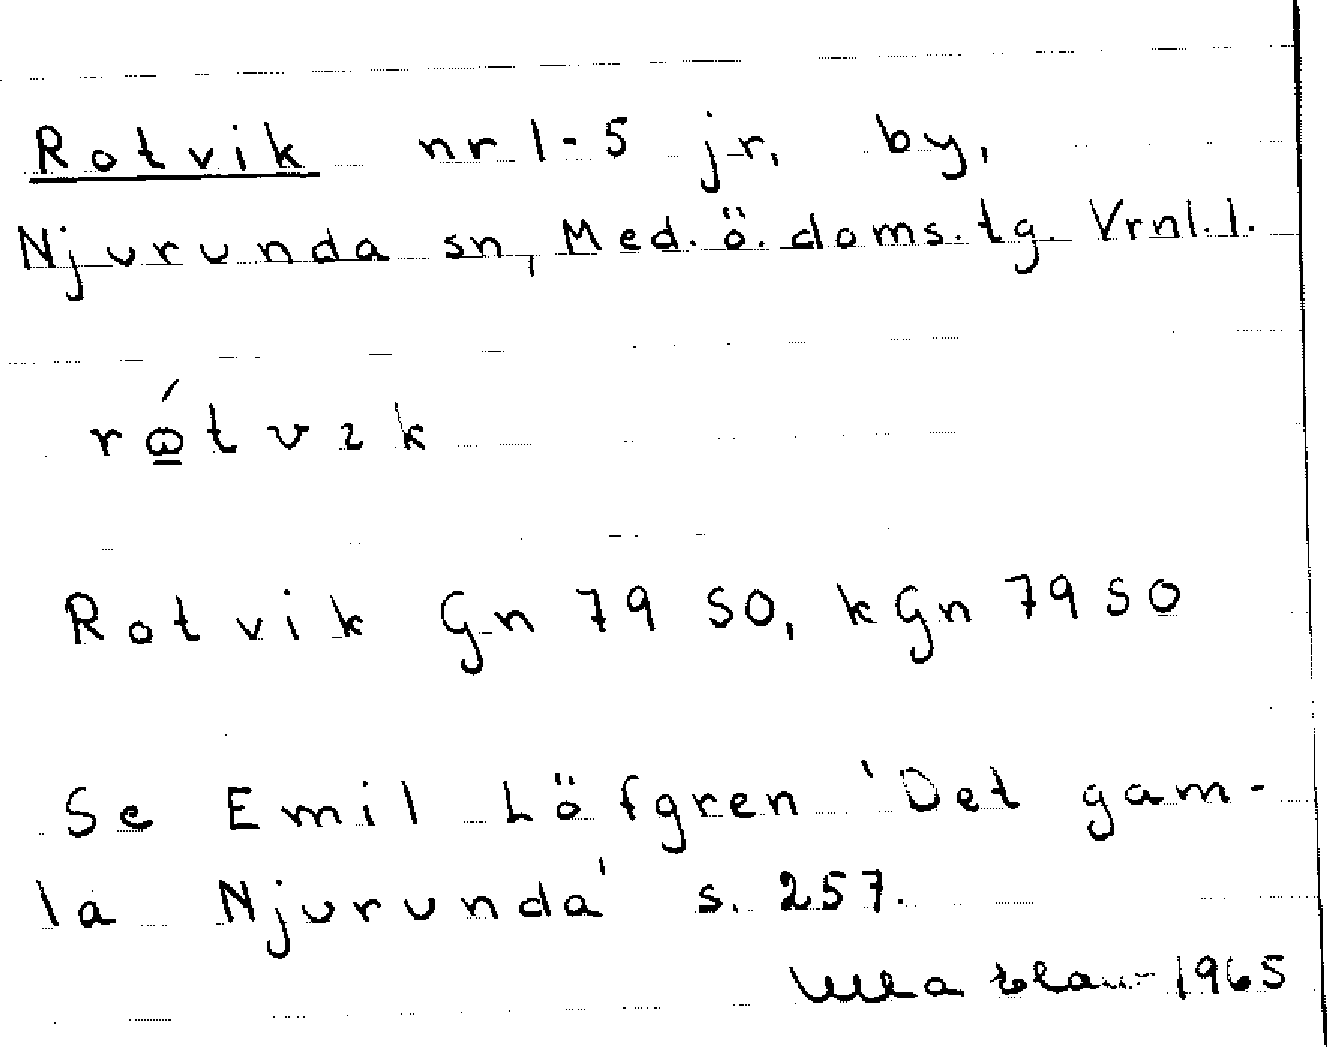 Rotvik nr 1-5 jr, by,
Njurunda sn, Med. ö. doms. tg. Vrnl. l.
Rotvik Gn 79 SO, kGn 79 SO
Se Emil Löfgren 'Det gam-
la Njurunda' s. 257.
1965